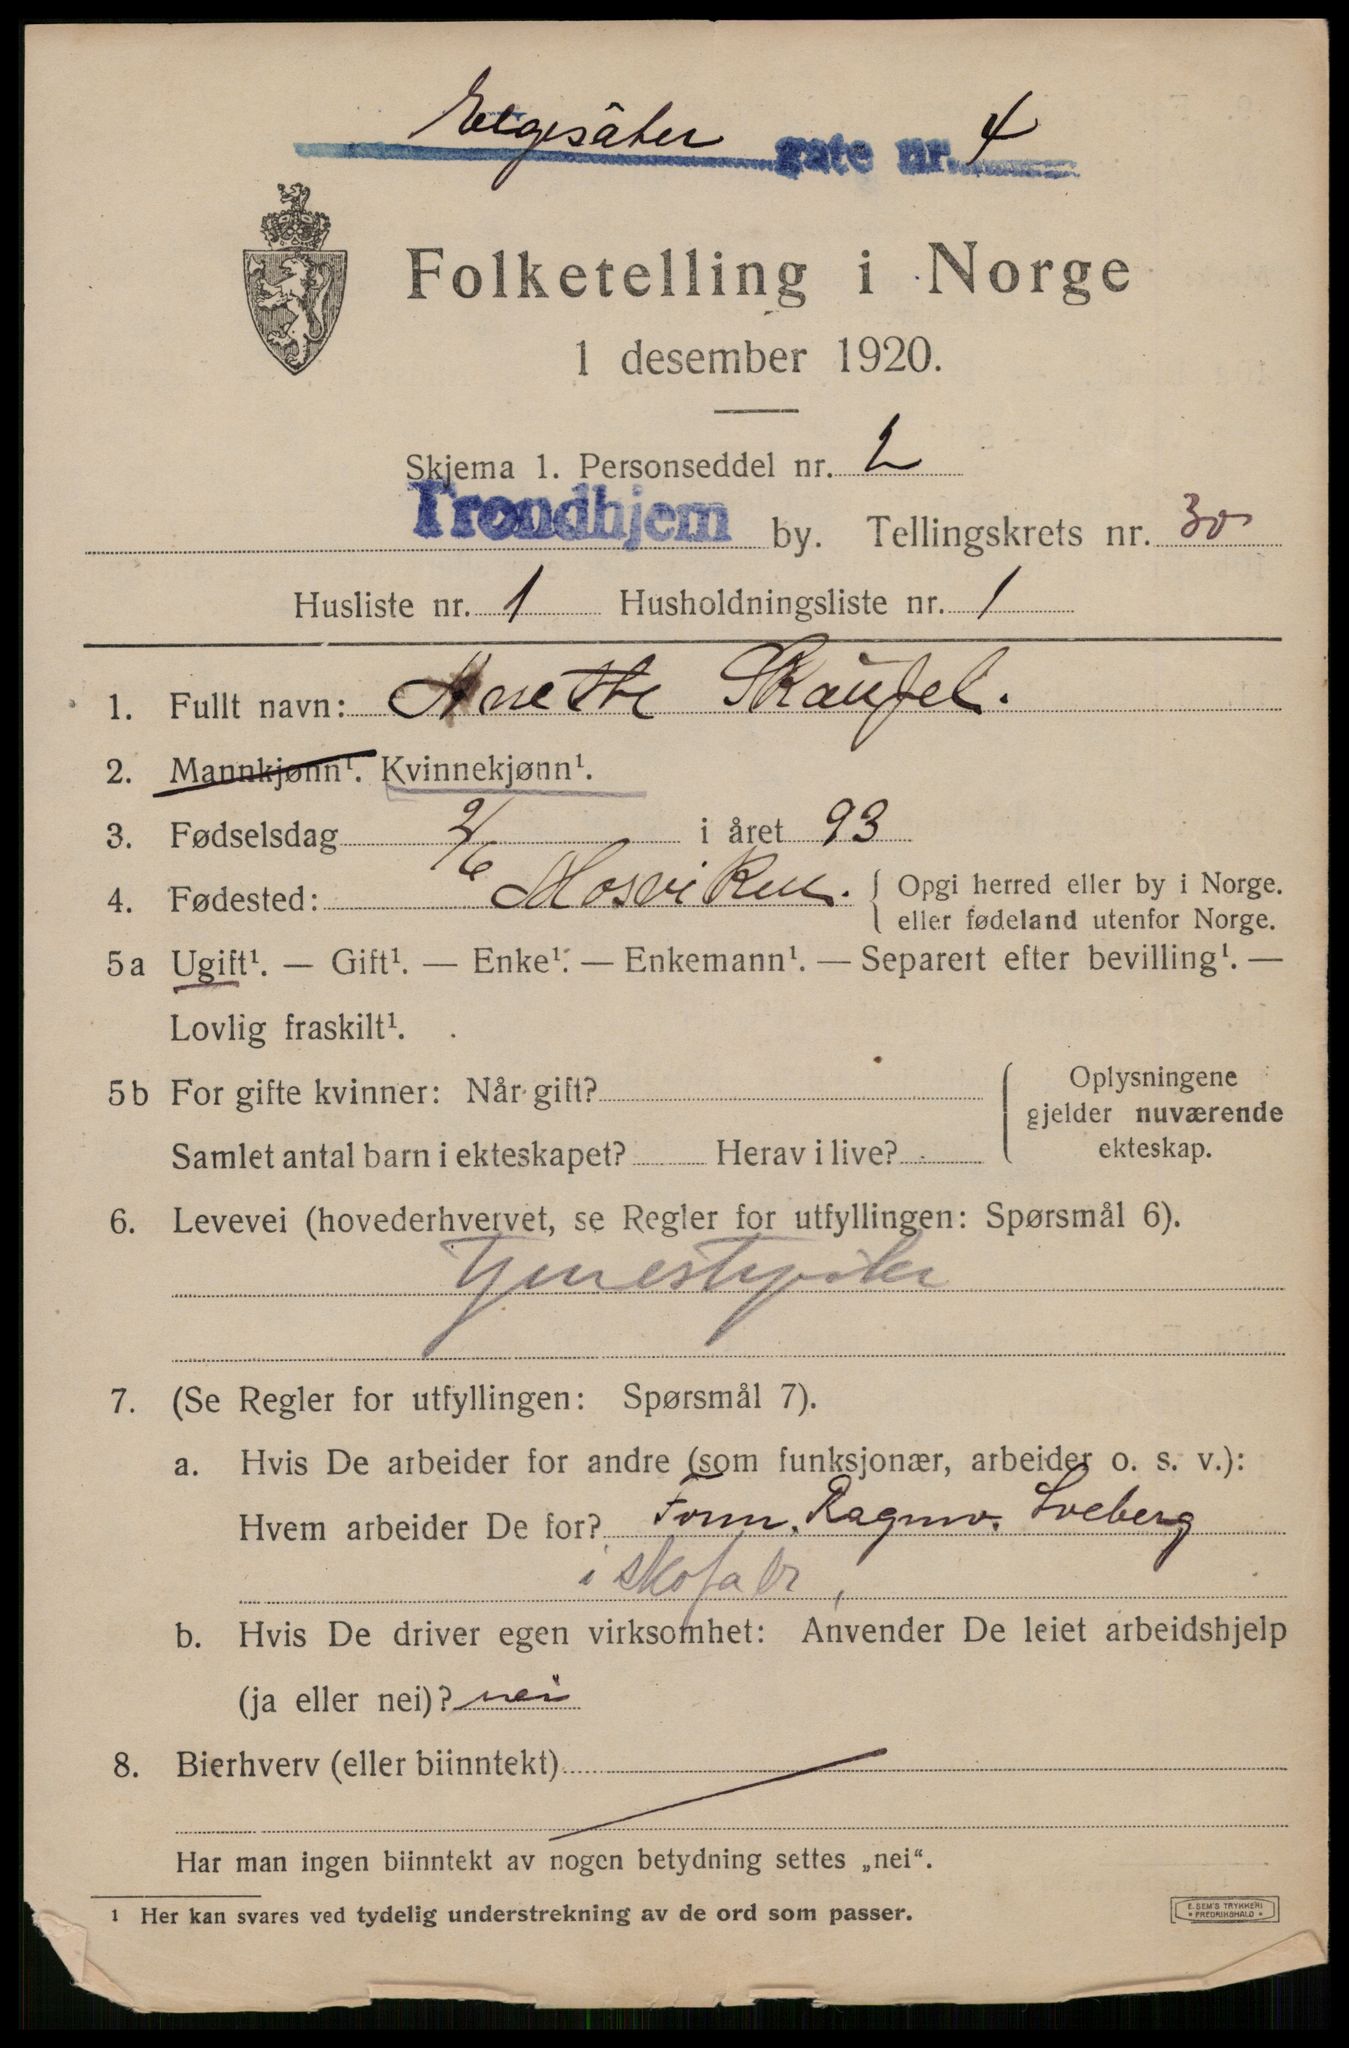 Elgesäter gate nr. 4
Folketelling i Norge
1 desember 1920.
Skjema 1. Personseddel nr. 2
Trondhjem by. Tellingskrets nr. 30
Husliste nr. 1 Husholdningsliste nr. 1
1. Fullt navn: Anette Skaufel.
2. Mannkjønn¹. Kvinnekjønn¹.
3. Fødselsdag 2/6 i året 93
4. Fødested: Mosviken. { Opgi herred eller by i Norge.
eller fødeland utenfor Norge.
5a Ugift¹. — Gift¹. — Enke¹. — Enkemann¹. — Separert efter bevilling¹. —
Lovlig fraskilt¹.
5b For gifte kvinner: Når gift?
Samlet antal barn i ekteskapet? Herav i live?
Oplysningene
gjelder nuværende
ekteskap.
6. Levevei (hovederhvervet, se Regler for utfyllingen: Spørsmål 6).
7. (Se Regler for utfyllingen: Spørsmål 7).
a. Hvis De arbeider for andre (som funksjonær, arbeider o. s. v.):
Hvem arbeider De for? Ragnv. Soeberg
i skofabr,
b. Hvis De driver egen virksomhet: Anvender De leiet arbeidshjelp
(ja eller nei)? nei
8. Bierhverv (eller biinntekt)
Har man ingen biinntekt av nogen betydning settes „nei“.
¹ Her kan svares ved tydelig understrekning av de ord som passer.
E. SEM'S TRYKKERI
* FREDRIKSHALD *